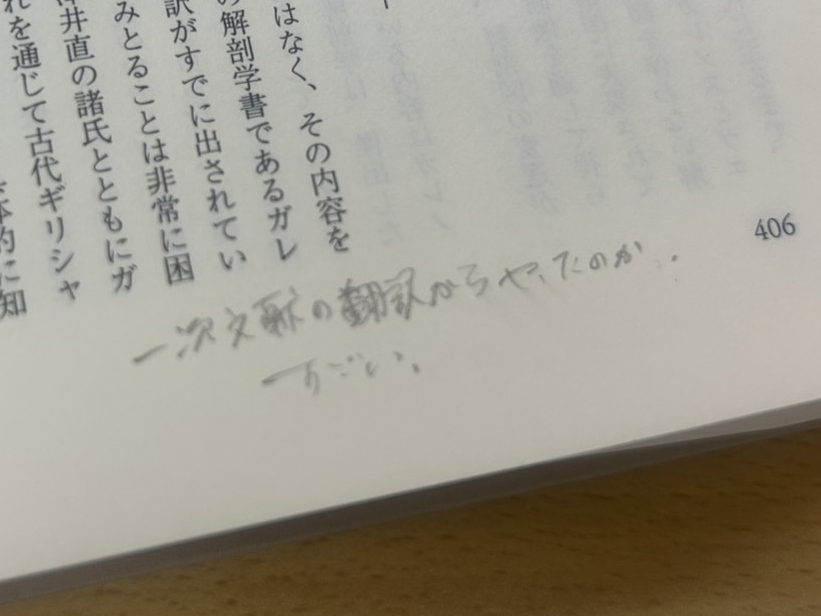 はなく、その内容を
の解剖学書であるガレ
訳がすでに出されてい
みとることは非常に困
井直の諸氏とともにガ
れを通じて古代ギリシャ
体的に知
406
一次文献の翻訳からやったのか…
すごい。